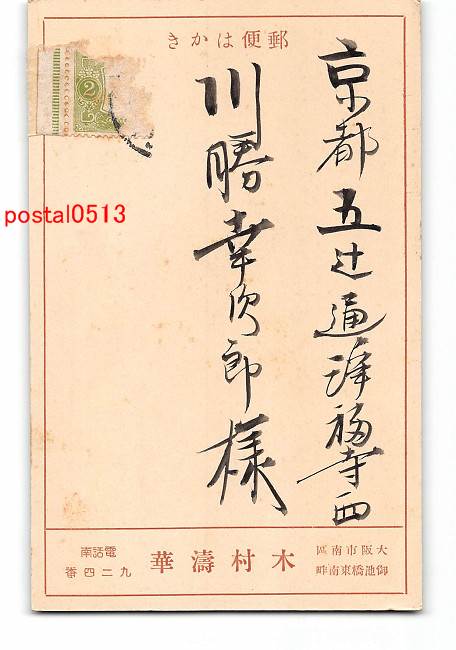 郵便はかき
京都五辻通浄福寺西
川勝幸次郎様
2
postal0513
大阪市南區
御池橋東南畔
木村濤華
電話南
九二四番